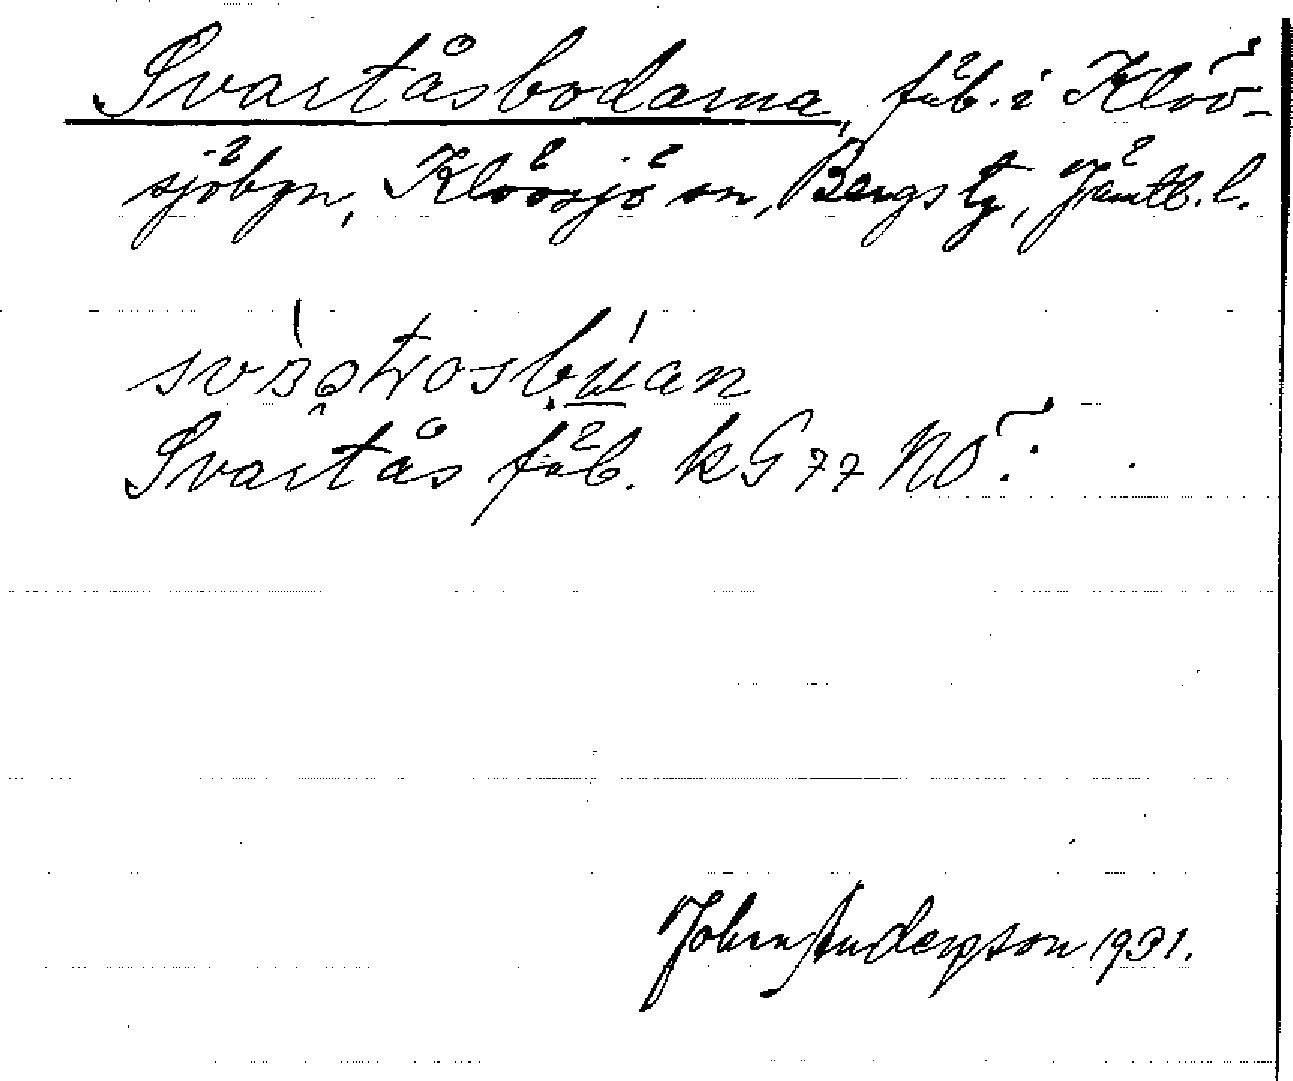 Svartåsbodarna, fäb. i Klöv-
sjöbyn, Klövsjö sn, Bergs tg, Jämtl. l.
Svartås fäb. kG 77 NO.
John Anderson 1931.